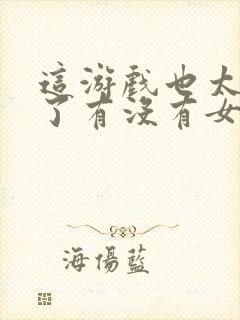 這游戲也太
了有沒有女
海傷藍